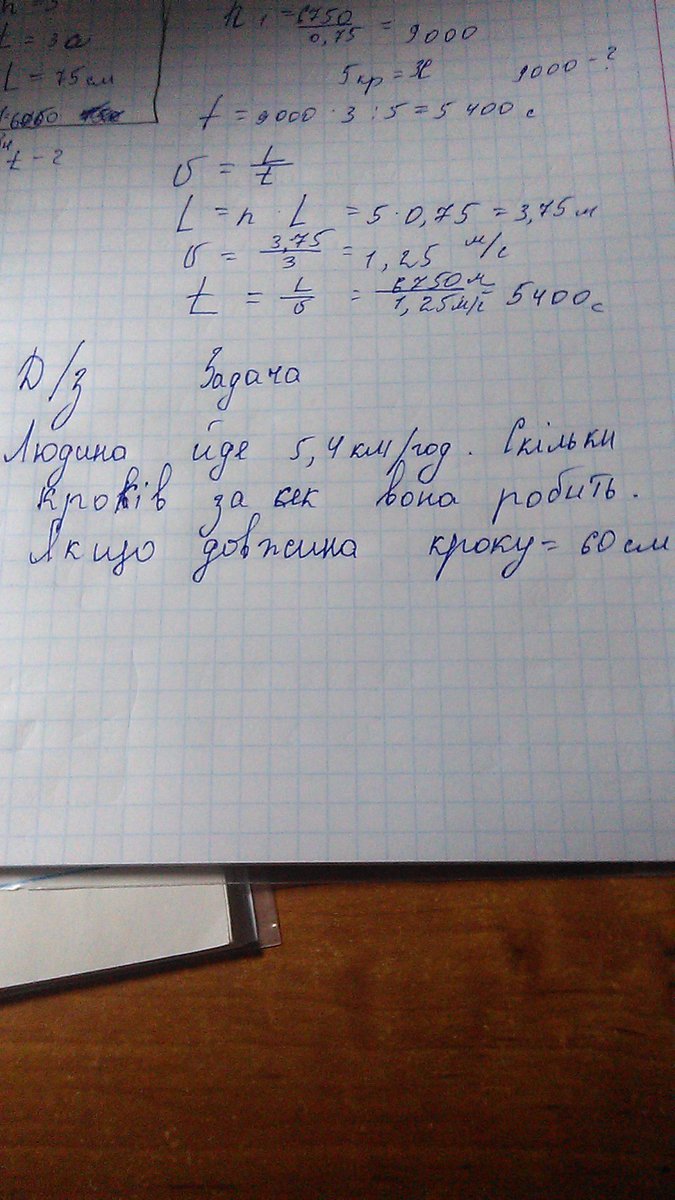 t = 3с
L = 75 см
t - ?
n 1 = 6750/0,75 = 9000
5кр = 3с 9000 - ?
t = 9000 · 3 : 5 = 5 400 с
υ = L/t
L = n · L = 5 · 0,75 = 3,75 м
υ = 3,75/3 = 1,25 м/с
t = L/υ = 6750м/1,25м/с = 5400с
Д/з Задача
Людина йде 5,4 км/год. Скільки
кроків за сек вона робить.
Якщо довжина кроку = 60 см